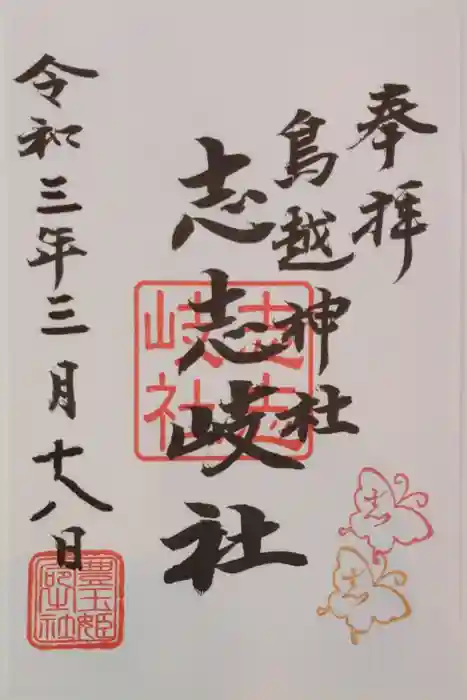 奉拝
鳥越神社
志志岐社
志志
岐社
令和三年三月十八日
豊玉姫
志
志